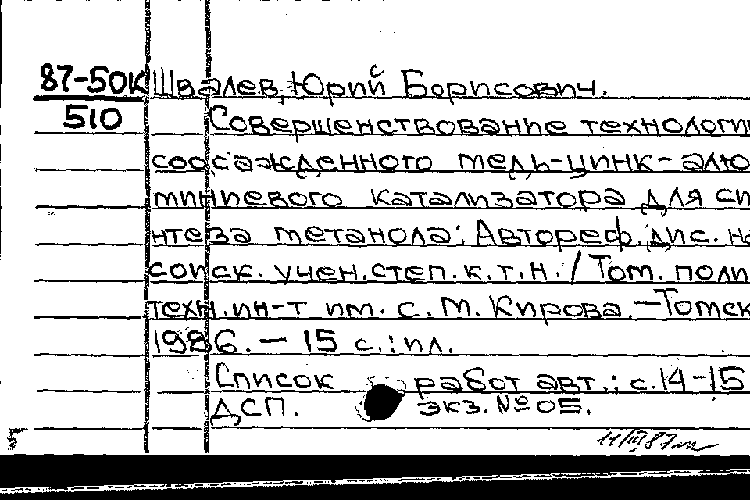 87-50К Швалев, Юрий Борисович.
510 Совершенствование технологии
соосажденного медь-цинк-алю
миниевого катализатора для си
нтеза метанола: Автореф. дис. на
соиск. учен. степ. к.т.н. / Том. поли
техн. ин-т им. С. М. Кирова. — Томск
1986. — 15 с.: ил.
Список работ авт.: с. 14-15
ДСП. экз. № 05.